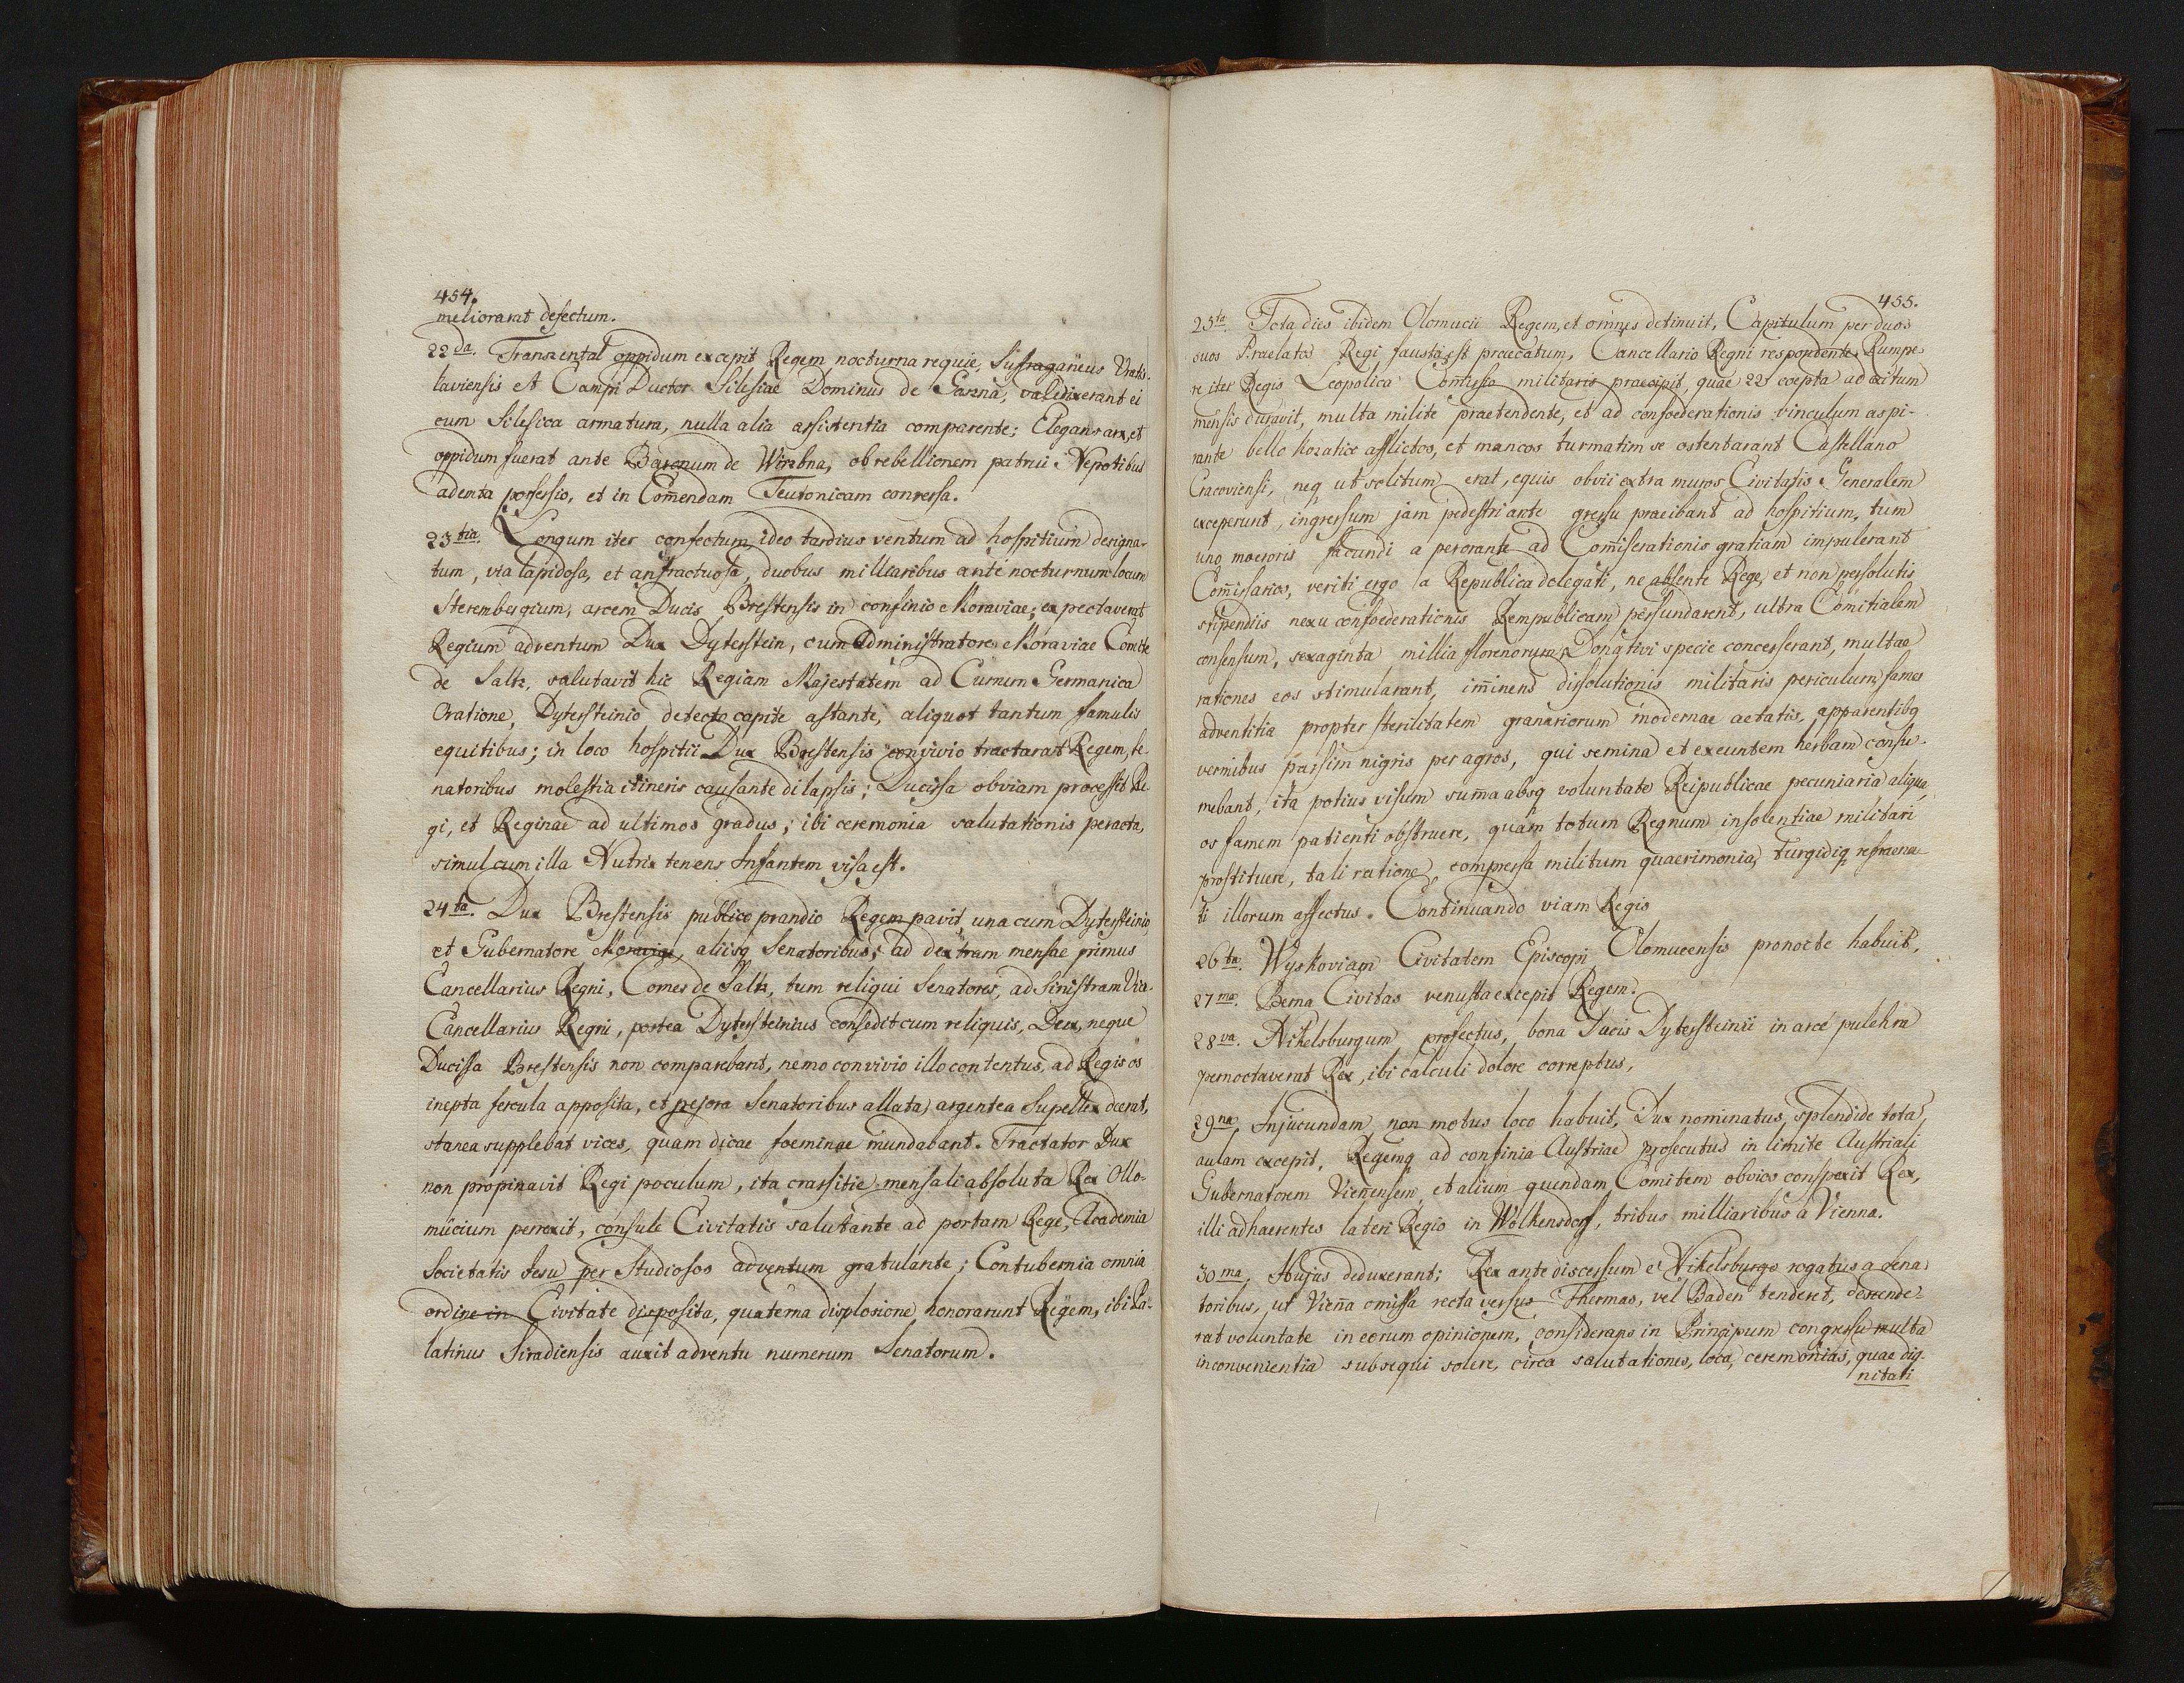 454.
meliorarat defectum.
22da. Transental oppidum excepit Regem nocturna requie, Suffraganeus Vratis-
laviensis et Campi Ductor Silesiae Dominus de Garzna, valedixerant ei
cum Silesica armatura, nulla alia assistentia comparente; Elegans arx, et
oppidum fuerat ante Baronum de Wirzbna, ob rebellionem patrui Nepotibus
adempta possessio, et in Comendam Teutonicam conversa.
23tia. Longum iter confectum, ideo tardius ventum ad hospitium designa-
tum, via lapidosa, et anfractuosa, duobus milliaribus ante nocturnum locum
Sterembergium, arcem Ducis Brestensis in confinio Moraviae; expectaverat
Regium adventum Dux Dyterstein, cum Administratore Moraviae Comite
de Saltz, salutavit hic Regiam Majestatem ad Currum Germanica
Oratione, Dytersteinio detecto capite astante, aliquot tantum famulis
equitibus; in loco hospitii Dux Brestensis convivio tractarat Regem, se-
natoribus molestia itineris causante dilapsis; Ducissa obviam processit Re-
gi, et Reginae ad ultimos gradus; ibi ceremonia salutationis peracta,
simul cum illa Nutrix tenens Infantem visa est.
24ta. Dux Brestensis publico prandio Regem pavit, una cum Dytersteinio,
et Gubernatore Moraviae, aliisq Senatoribus; ad dextram mensae primus
Cancellarius Regni, Comes de Saltz, tum reliqui Senatores, ad Sinistram Vice-
Cancellarius Regni, postea Dytersteinius consedit cum reliquis, Dux, neque
Ducissa Brestensis non comparebant, nemo convivio illo contentus, ad Regis os
inepta fercula apposita, et pejora Senatoribus allata, argentea Supellex deerat,
stanea supplebat vices, quam dicae foeminae mundabant. Tractator Dux
non propinavit Regi poculum, ita crassitie mensali absoluta Rex Ollo-
mucium perrexit, consule Civitatis salutante ad portam Rege, Academia
Societatis Jesu per Studiosos adventum gratulante; Contubernia omnia
ordine in Civitate disposita, quaterna displosione honorarunt Regem, ibi Pa-
latinus Siradiensis auxit adventu numerum Senatorum.
455.
25ta. Tota dies ibidem Olomucii Regem, et omnes detinuit, Capitulum per duos
suos Praelatos Regi fausta est praecatum, Cancellario Regni respondente. Rumpe-
re iter Regis Leopolica Comissa militaris praecipit, quae 22 coepta ad exitum
mensis duravit, multa milite praetendente, et ad confoederationis vinculum aspi-
rante bello Kozatico afflictos, et mancos turmatim se ostentarant Castellano
Cracoviensi, neq ut solitum erat, equis obvii extra muros Civitatis Generalem
exceperunt, ingressum jam pedestri ante gressu praeibant ad hospitium, tum
uno moeroris facundi a perorante ad Comiserationis gratiam impulerant
Comissarios, veriti ergo a Republica delegati, ne absente Rege, et non persolutis
stipendiis nexu confoederationis Rempublicam persundarent, ultra Comitialem
consensum, sexaginta millia florenorum Donativi specie concesserant, multae
rationes eos stimularant, iminens dissolutionis militaris periculum, fames
adventitia propter sterilitatem granariorum modernae aetatis, apparentibq
vermibus passim nigris per agros, qui semina et exeuntem herbam consu-
mebant, ita potius visum suma absq voluntate Reipublicae pecuniaria aliqua
os famem patienti obstruere, quam totum Regnum insolentiae militari
prostituere, tali ratione, compressa militum quaerimonia, turgidiq refraena-
ti illorum affectus. Continuando viam Regis
26ta. Wyskoviam Civitatem Episcopi Olomucensis pronocte habuit,
27ma. Berna Civitas venusta excepit Regem.
28va. Nikelsburgum profectus, bona Ducis Dytersteinii in arce pulchra
pernoctaverat Rex, ibi calculi dolore correptus,
29na. Injucundam non motus loco habuit, Dux nominatus, splendide tota
aulam excepit, Regemq ad confinia Austriae prosecutus in limite Austriali
Gubernatorem Vienensem, et alium quendam Comitem obvios conspexit Rex,
illi adhaerentes lateri Regio in Wolkensdorf, tribus milliaribus a Vienna.
30ma. Hujus deduxerant; Rex ante discessum e Nikelsburgo rogatus a Sena-
toribus, ut Viena omissa recta versus Thermas, vel Baden tenderet, descende-
rat voluntate in eorum opinionem, considerans in Principum congressu multa
inconvenientia subsequi solere, circa salutationes, loca, ceremonias, quae dig-
nitati